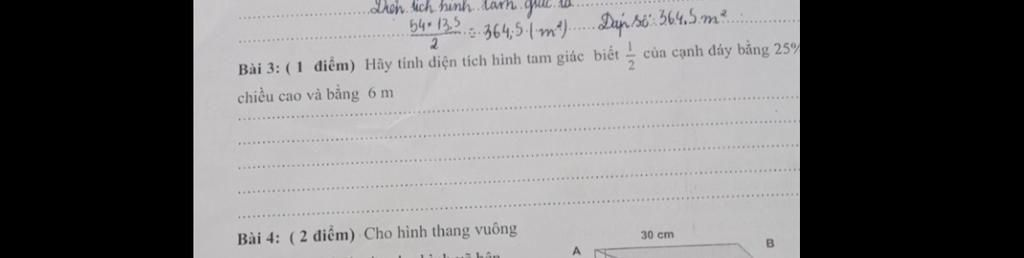 Diện tích hình tam giác là
54 × 13,5 / 2 = 364,5 (m²) Đáp số: 364,5 m²
Bài 3: ( 1 điểm) Hãy tính diện tích hình tam giác biết 1/2 của cạnh đáy bằng 25%
chiều cao và bằng 6 m
Bài 4: ( 2 điểm) Cho hình thang vuông
30 cm
A B